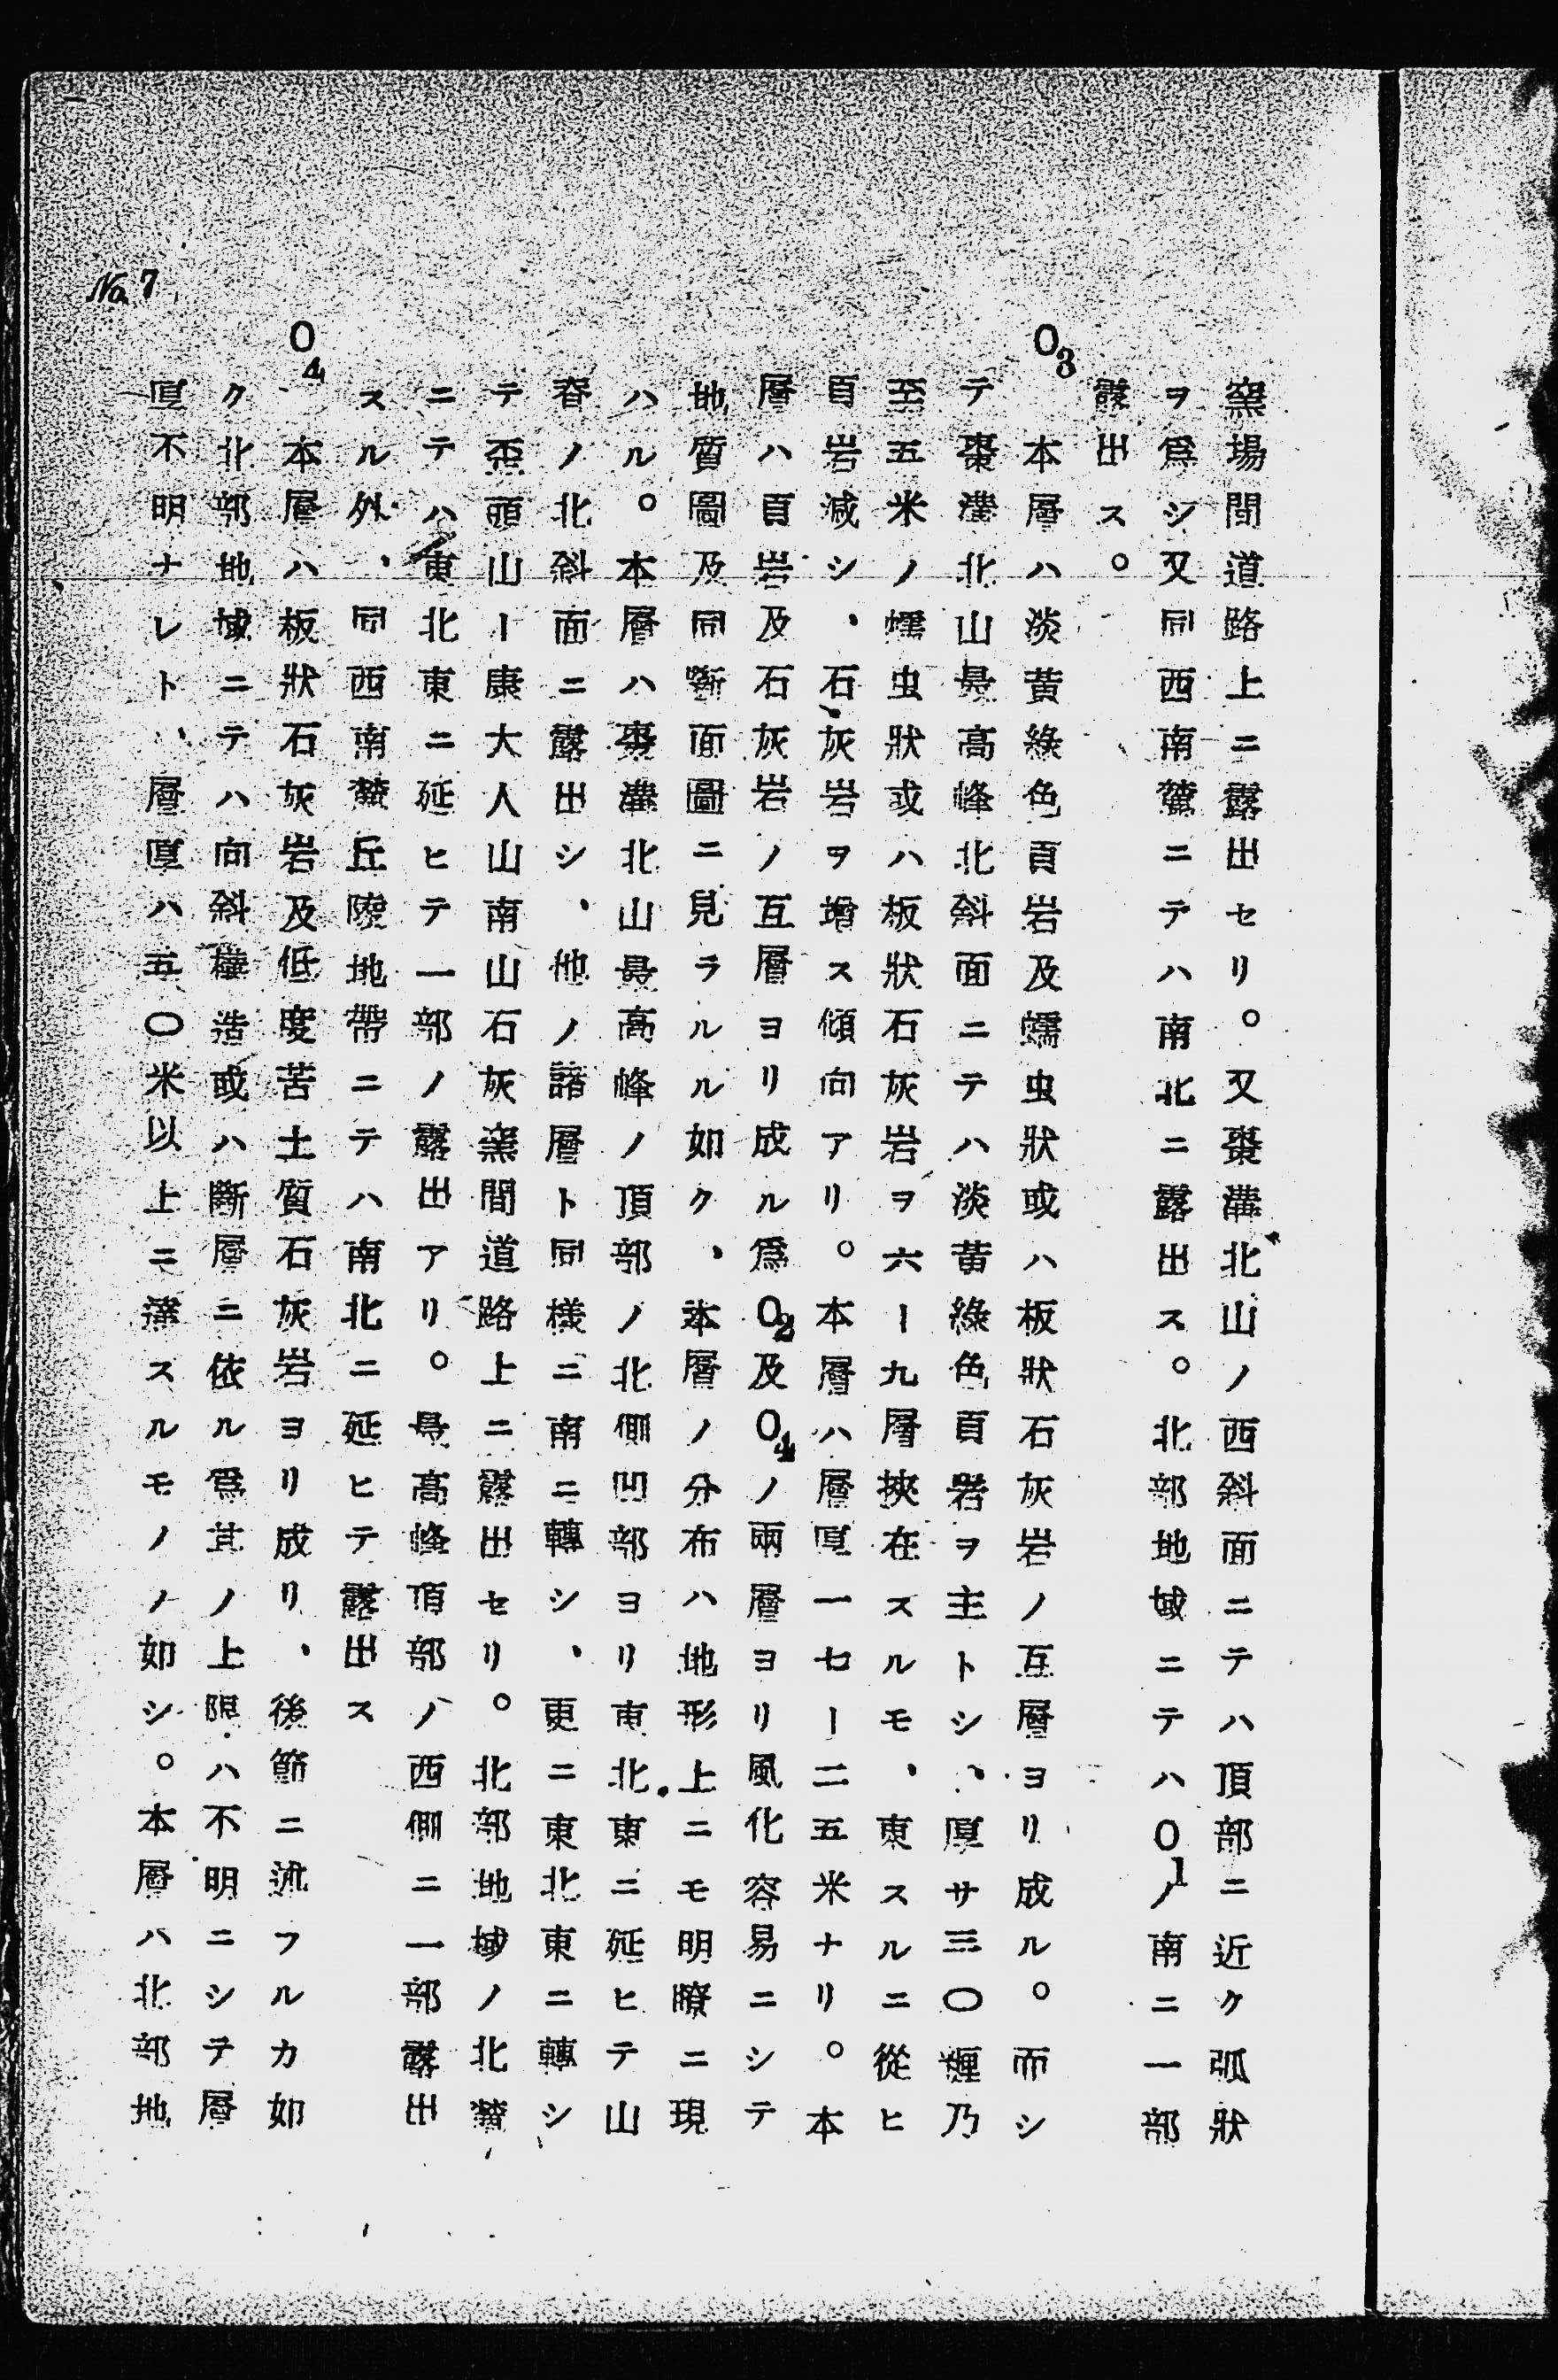 窯場間道路上ニ露出セリ。又棗溝北山ノ西斜面ニテハ頂部ニ近ク弧狀
ヲ爲シ又同西南麓ニテハ南北ニ露出ス。北部地域ニテハO1ノ南ニ一部
露出ス。
O3
本層ハ淡黄綠色頁岩及蠕虫狀或ハ板狀石灰岩ノ互層ヨリ成ル。而シ
テ棗溝北山最高峰北斜面ニテハ淡黄綠色頁岩ヲ主トシ、厚サ三〇糎乃
至五米ノ蠕虫狀或ハ板狀石灰岩ヲ六ー九層挾在スルモ、東スルニ從ヒ
頁岩減シ、石灰岩ヲ增ス傾向アリ。本層ハ層厚一七ー二五米ナリ。本
層ハ頁岩及石灰岩ノ互層ヨリ成ル爲O2及O4ノ兩層ヨリ風化容易ニシテ
地質圖及同斷面圖ニ見ラルル如ク、本層ノ分布ハ地形上ニモ明瞭ニ現
ハル。本層ハ棗溝北山最高峰ノ頂部ノ北側凹部ヨリ東北東ニ延ヒテ山
脊ノ北斜面ニ露出シ、他ノ諸層ト同樣ニ南ニ轉シ、更ニ東北東ニ轉シ
テ歪頭山ー康大人山南山石灰窯間道路上ニ露出セリ。北部地域ノ北麓
ニテハ東北東ニ延ヒテ一部ノ露出アリ。最高峰頂部ノ西側ニ一部露出
スル外、同西南麓丘陵地帶ニテハ南北ニ延ヒテ露出ス
O4
本層ハ板狀石灰岩及低度苦土質石灰岩ヨリ成リ、後節ニ述フルカ如
ク北部地域ニテハ向斜構造或ハ斷層ニ依ル爲其ノ上限ハ不明ニシテ層
厚不明ナレト、層厚ハ五〇米以上ニ達スルモノノ如シ。本層ハ北部地
No.7